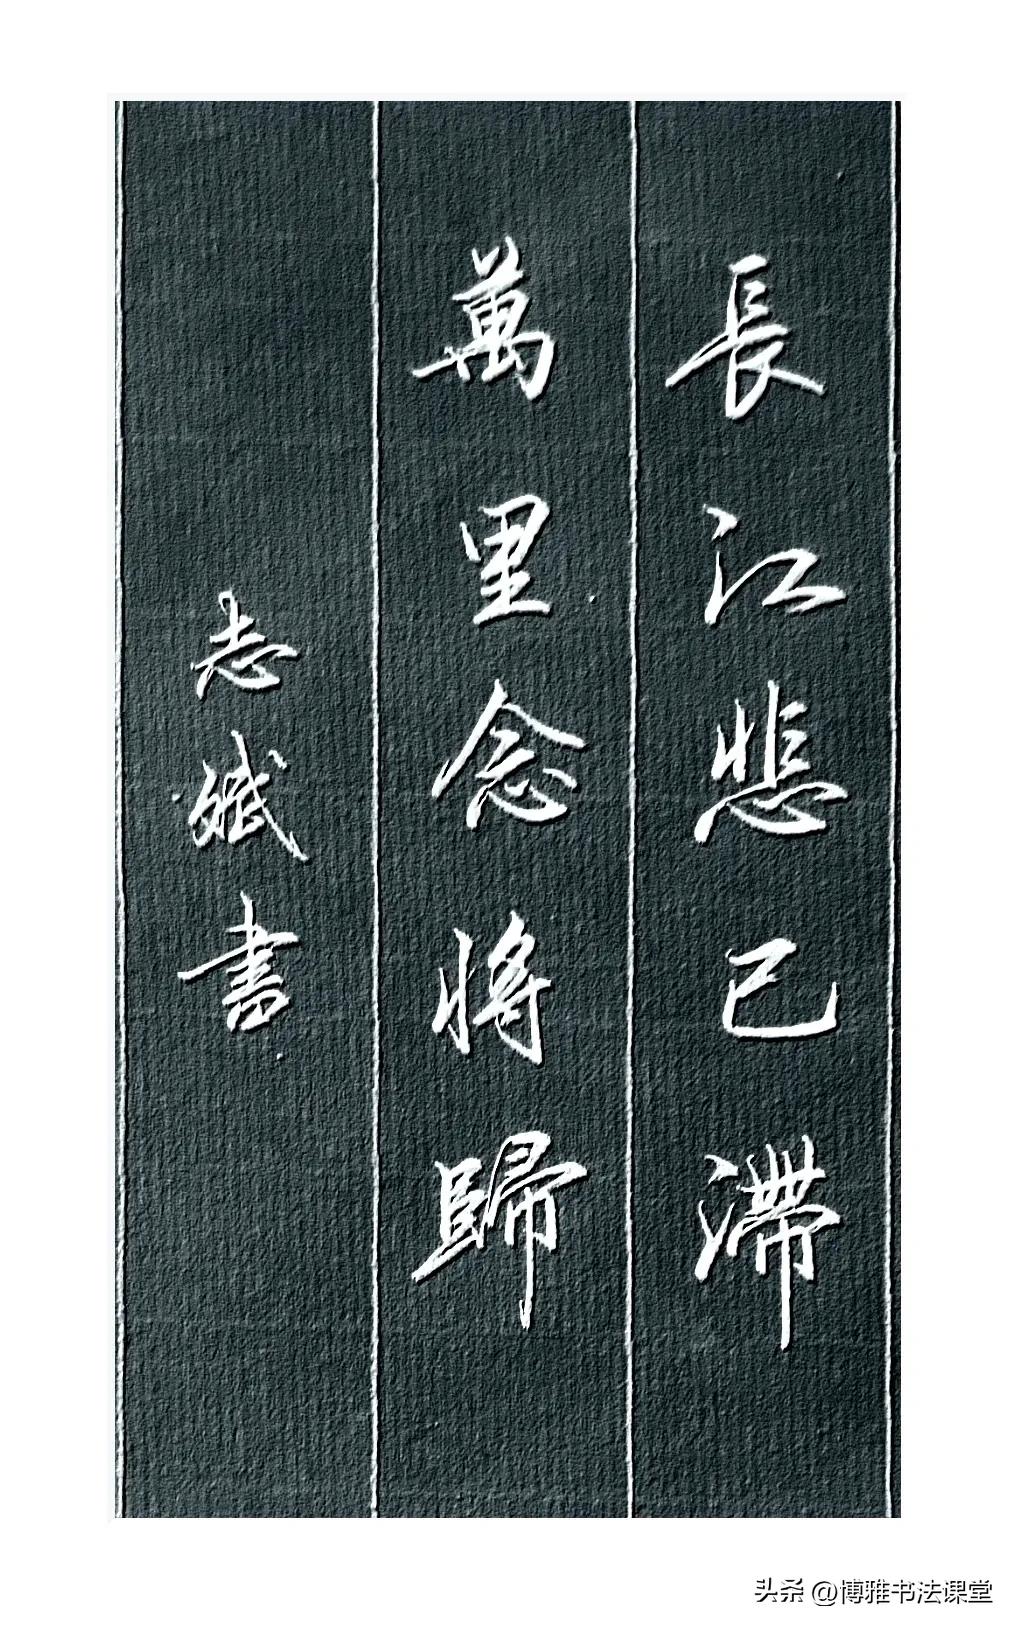 長江悲已滯
萬里念將歸
志斌書
头条 @博雅书法课堂